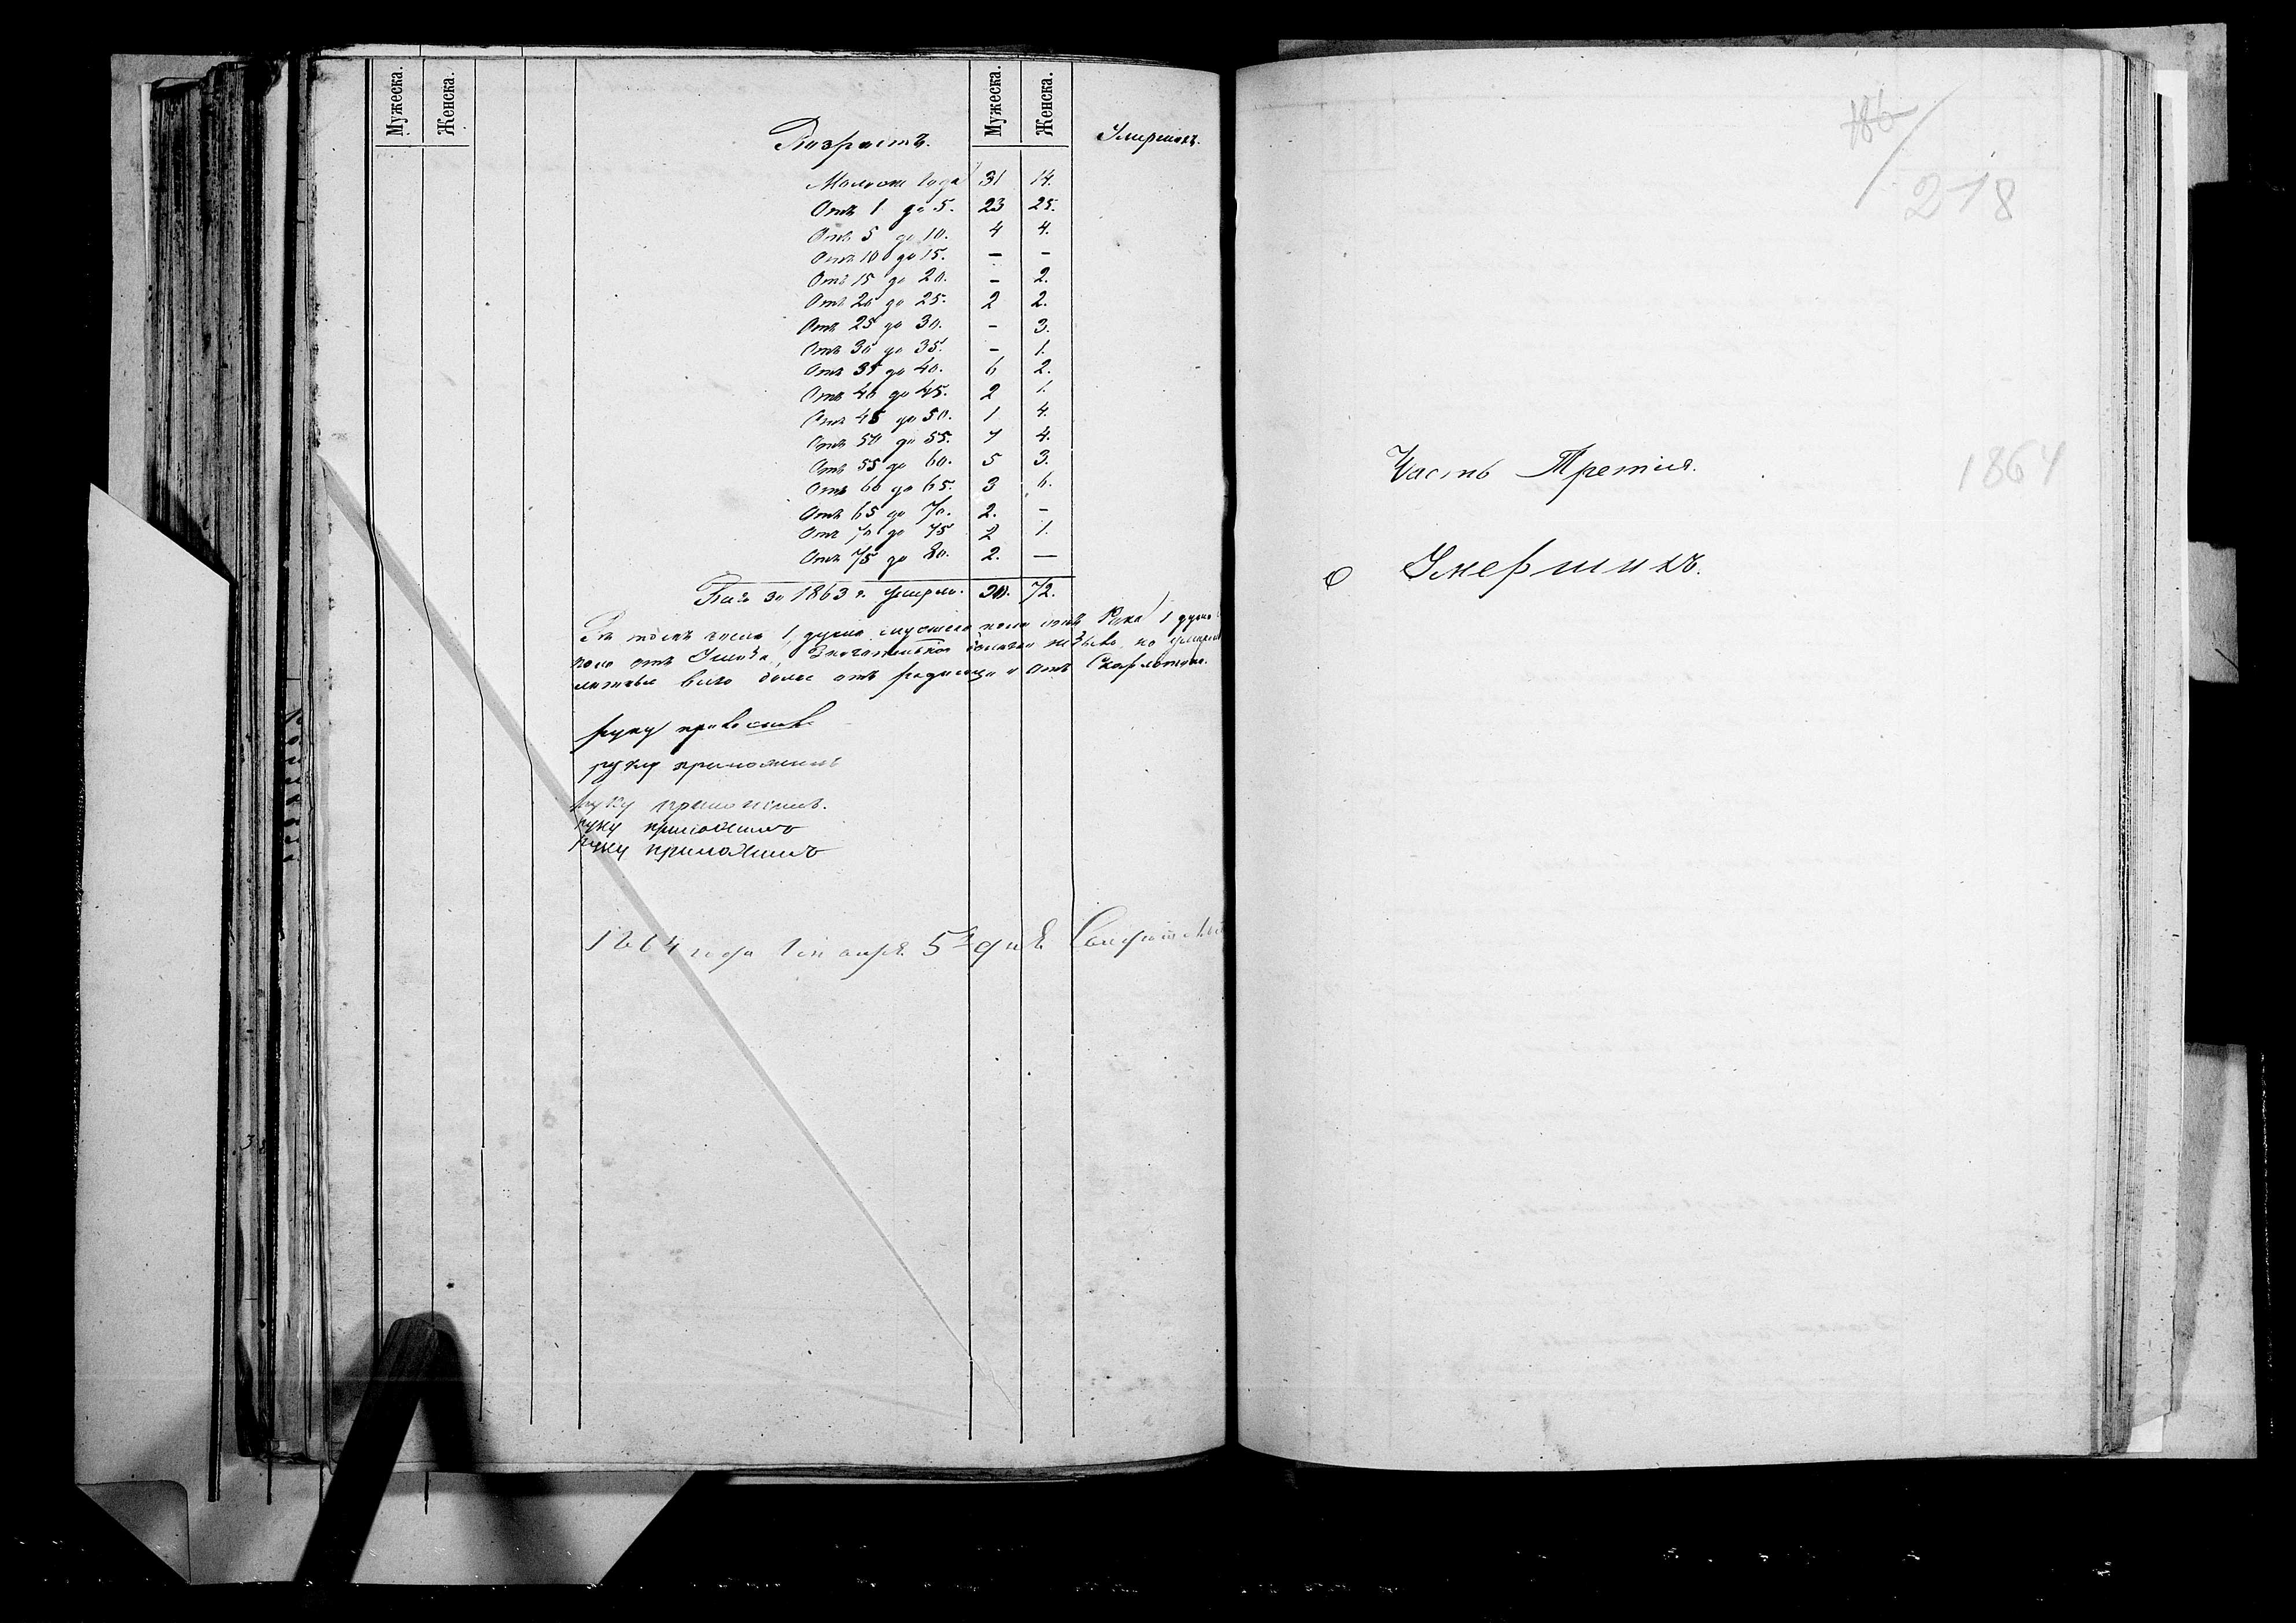 Мужеска. Женска. Возрастъ. Мужеска. Женска. Умершихъ.
Моложе года 31 14.
Отъ 1 до 5. 23 25.
Отъ 5 до 10. 4 4.
Отъ 10 до 15. — —
Отъ 15 до 20. — 2.
Отъ 20 до 25. 2 2.
Отъ 25 до 30. — 3.
Отъ 30 до 35. — 1.
Отъ 35 до 40. 6 2.
Отъ 40 до 45. 2 1.
Отъ 45 до 50. 1 4.
Отъ 50 до 55. 7 4.
Отъ 55 до 60. 5 3.
Отъ 60 до 65. 3 6.
Отъ 65 до 70. 2. —
Отъ 70 до 75 2 1.
Отъ 75 до 80. 2. —
Всего за 1863 г. умерло. 90. 72.
Въ томъ числѣ 1 душа мужеска пола отъ Рака 1 душа
пола отъ
всего болѣе отъ родимца и отъ Скарлатины.
руку приложилъ
руку приложилъ
руку приложилъ.
руку приложилъ
руку приложилъ
1864 года Генваря 5го дня
186
218
Часть Третия.
1864
О Умершихъ.